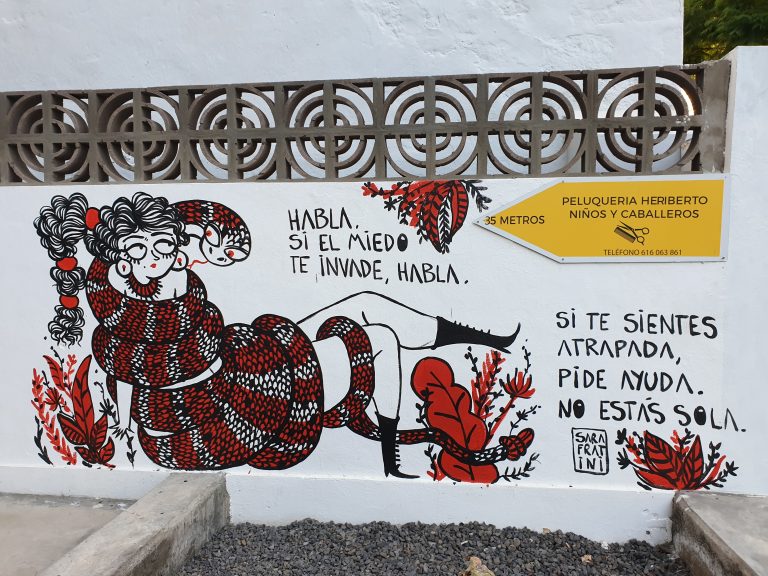 HABLA,
SI EL MIEDO
TE INVADE, HABLA.
35 METROS
PELUQUERIA HERIBERTO
NIÑOS Y CABALLEROS
TELÉFONO 616 063 861
SI TE SIENTES
ATRAPADA,
PIDE AYUDA.
NO ESTÁS SOLA.
SARA
FRAT
INI